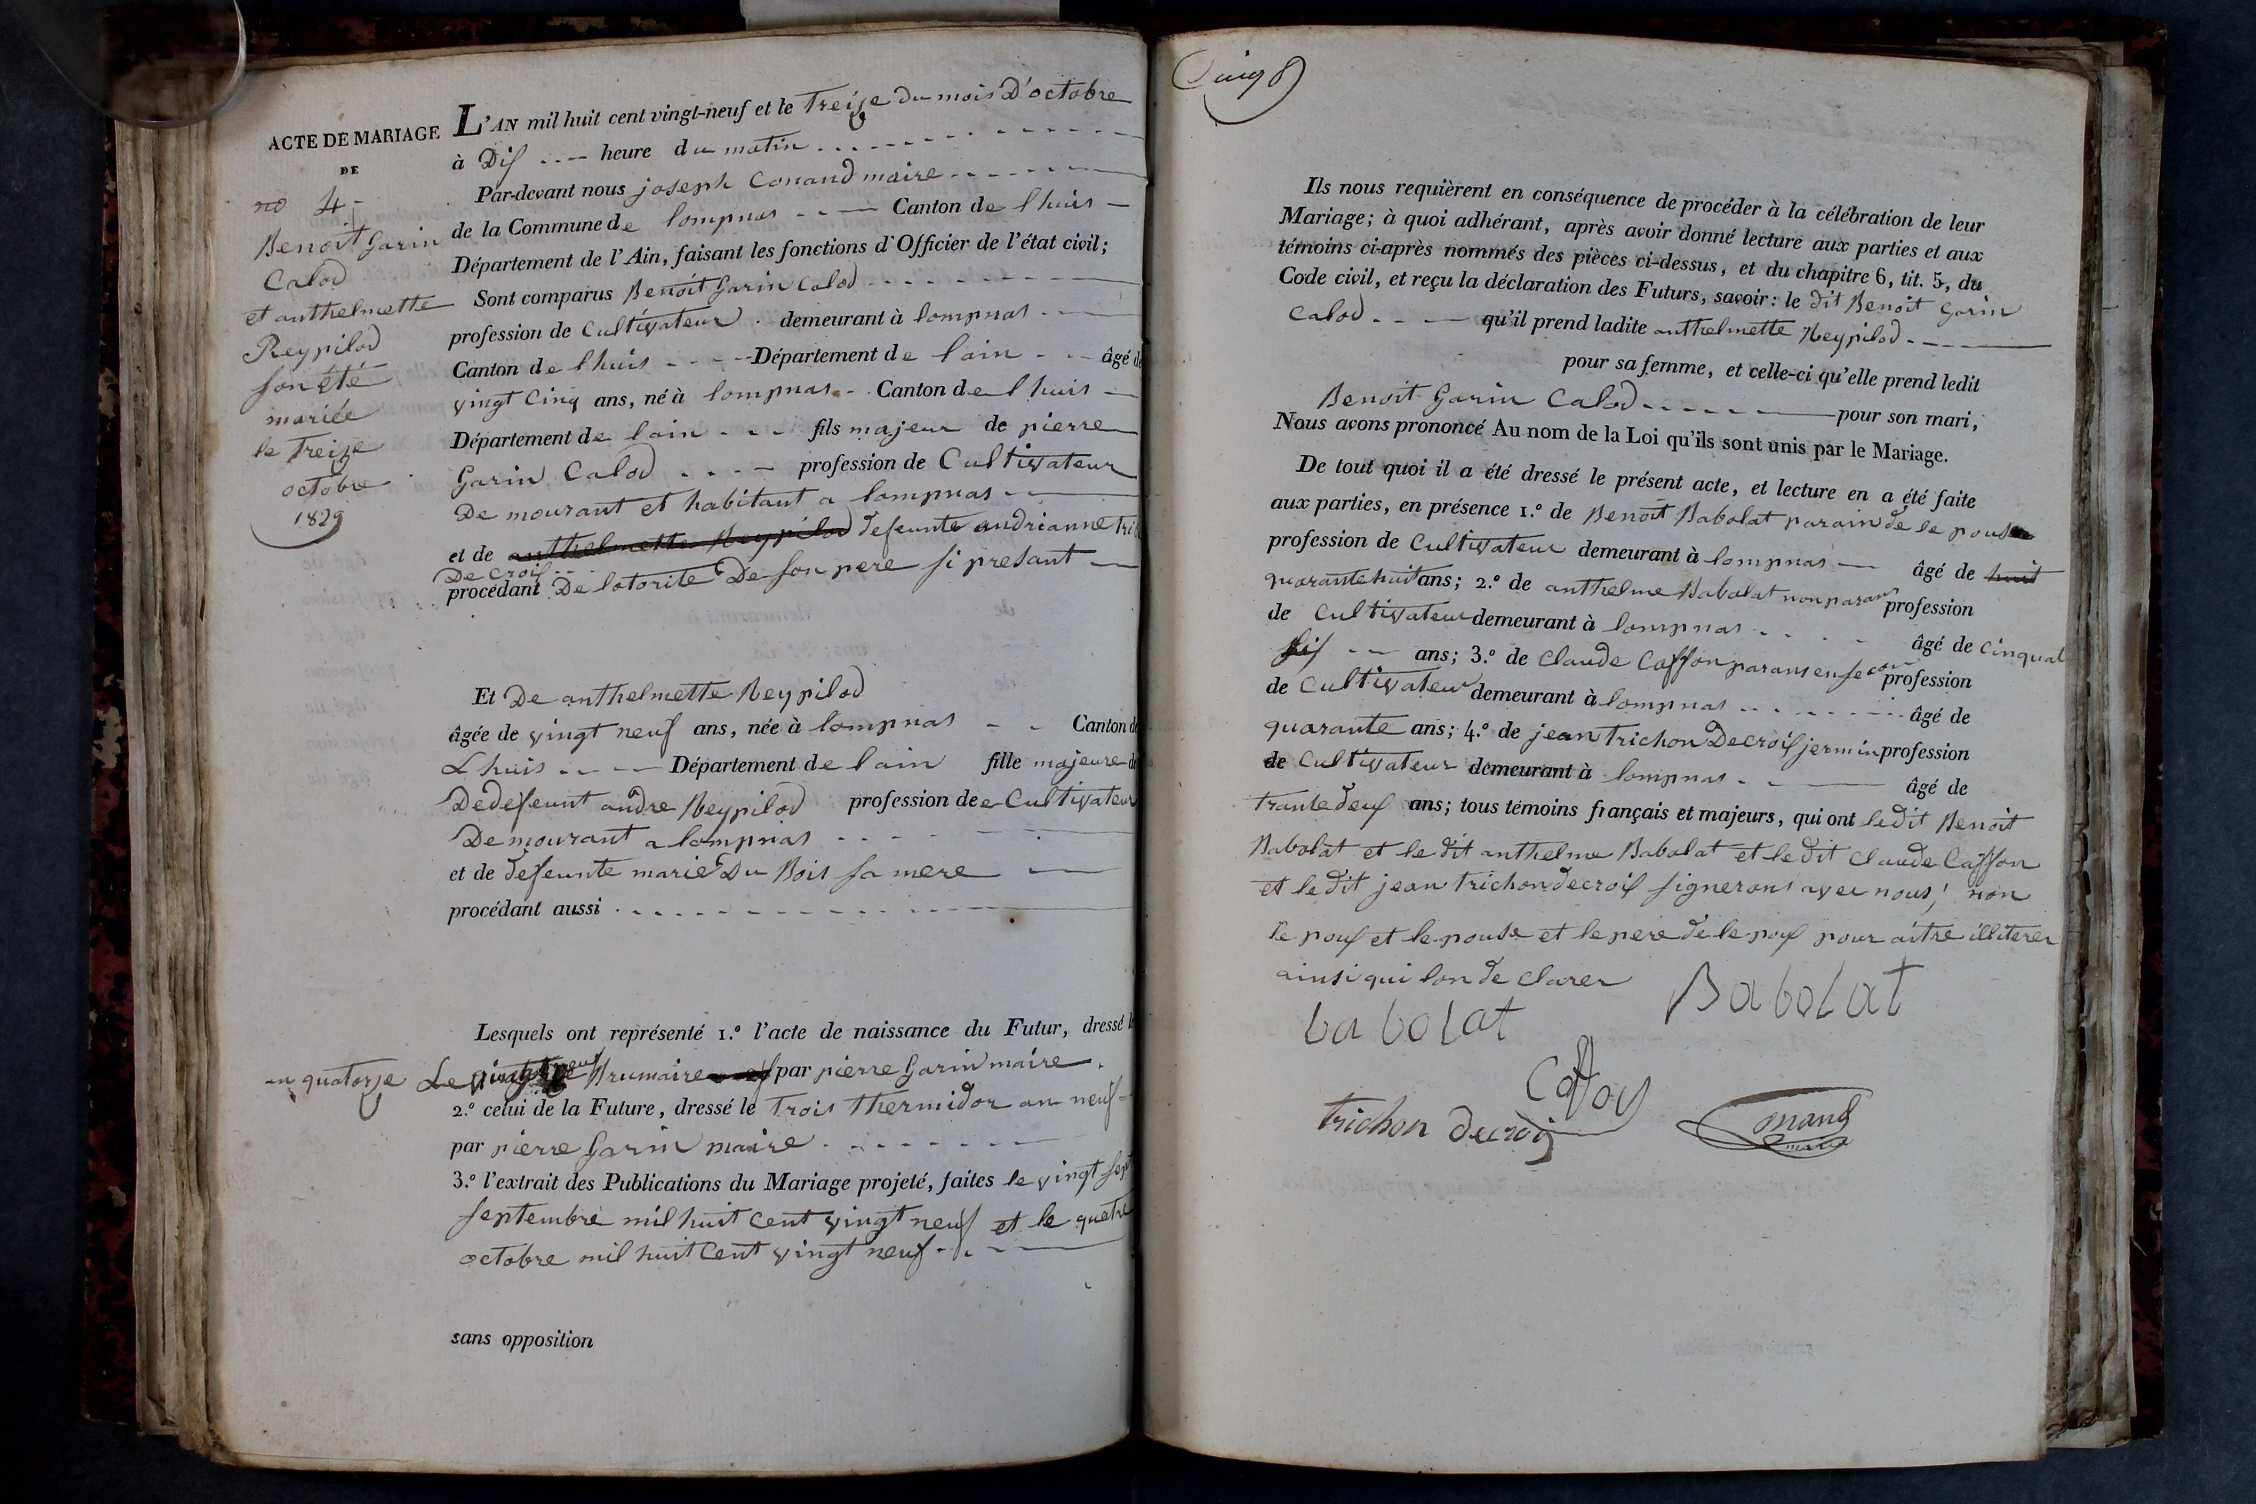 ACTE DE MARIAGE
DE
no 4 -
Benoit Garin
Calod
et anthelmette
Reypilod
son été
mariée
le Treize
octobre
1829
L'AN mil huit cent vingt-neuf et le Treize du mois D'octobre
à Dis heure du matin
Par-devant nous joseph Conand maire
de la Commune de lompnas Canton de lhuis
Département de l'Ain, faisant les fonctions d'Officier de l'état civil;
Sont comparus Benoit Garin Calod
profession de Cultivateur demeurant à lompnas
Canton de lhuis Département de lain âgé de
vingt Cinq ans, né à lompnas Canton de lhuis
Département de lain fils majeur de pierre
Garin Calod profession de Cultivateur
De mourant et habitant a lompnas
et de anthelmette Reypilod defeunte andrianne tri
De Crois
procédant De lotorite De son pere si presant
Et De anthelmette Reypilod
âgée de vingt neuf ans, née à lompnas Canton de
Lhuis Département de lain fille majeure de
De defeunt andre Reypilod profession de Cultivateur
De mourant a lompnas
et de defeunte marie Du Bois sa mere
procédant aussi
Lesquels ont représenté 1.° l'acte de naissance du Futur, dressé le
an quatorze Le vingt neuf Brumaire par pierre Garin maire
2.° celui de la Future, dressé le Trois thermidor an neuf
par pierre Garin maire
3.° l'extrait des Publications du Mariage projeté, faites le vingt sept
septembre mil huit cent vingt neuf et le quatre
octobre mil huit Cent vingt neuf
sans opposition
Ils nous requièrent en conséquence de procéder à la célébration de leur
Mariage; à quoi adhérant, après avoir donné lecture aux parties et aux
témoins ci-après nommés des pièces ci-dessus, et du chapitre 6, tit. 5, du
Code civil, et reçu la déclaration des Futurs, savoir: le dit Benoit Garin
Calod qu'il prend ladite anthelmette Reypilod
pour sa femme, et celle-ci qu'elle prend ledit
Benoit Garin Calod pour son mari,
Nous avons prononcé Au nom de la Loi qu'ils sont unis par le Mariage.
De tout quoi il a été dressé le présent acte, et lecture en a été faite
aux parties, en présence 1.° de Benoit Babolat parain de le pouse
profession de Cultivateur demeurant à lompnas âgé de huit
quarante huit ans; 2.° de anthelme Babolat non parans profession
de Cultivateur demeurant à lompnas âgé de cinquat
sis ans; 3.° de Claude Caffon parans en se con profession
de Cultivateur demeurant à lompnas âgé de
quarante ans; 4.° de jean Trichon Decrois jermin profession
de Cultivateur demeurant à lompnas âgé de
trante deus ans; tous témoins français et majeurs, qui ont ledit Benoit
Babolat et le dit anthelme Babolat et le dit Claude Caffon
et le dit jean trichon decrois signerons avec nous, non
le pous et le pouse et le pere de le pous pour aitre illiterer
ainsi qui lon de clarer
babolat Babolat
trichon decrois